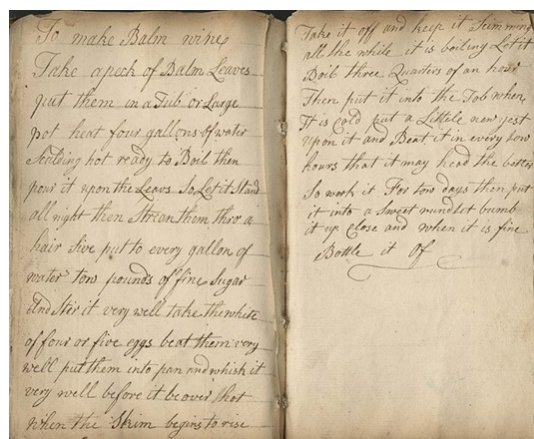 To make Balm wine
Take a peck of Balm Leaves
put them in a Tub or Large
pot heat four gallons of water
Scalding hot ready to Boil then
pour it upon the Leavs So Let it Stand
all night then Strean them thro a
hair Sive put to every gallon of
water tow pounds of fine Sugar
And Stir it very well take the white
of four or five eggs beat them very
well put them into pan and whisk it
very well before it be over hot
when the Skim begins to rise
Take it off and keep it Skimming
all the while it is boiling Let it
Boil three Quarters of an hour
Then put it into the Tob when
It is Cold put a Littele new yest
upon it and Beat it in every tow
hours that it may head the better
So work it For tow days then put
it into a Sweet rundlet bumb
it up Close and when it is fine
Bottle it Of